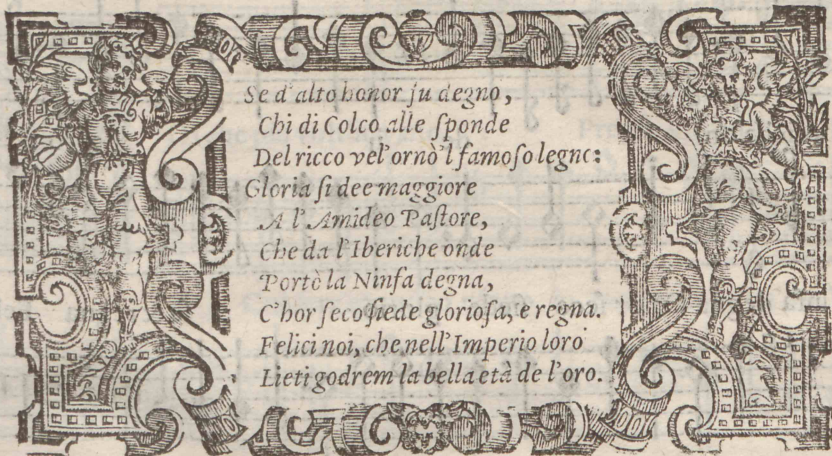 Se d'alto honor fu degno,
Chi di Colco alle ſponde
Del ricco vel' ornò 'l famoſo legno:
Gloria ſi dee maggiore
A l'Amideo Paſtore,
Che da l'Iberiche onde
Portò la Ninfa degna,
C'hor ſeco ſiede glorioſa, e regna.
Felici noi, che nell'Imperio loro
Lieti godrem la bella età de l'oro.